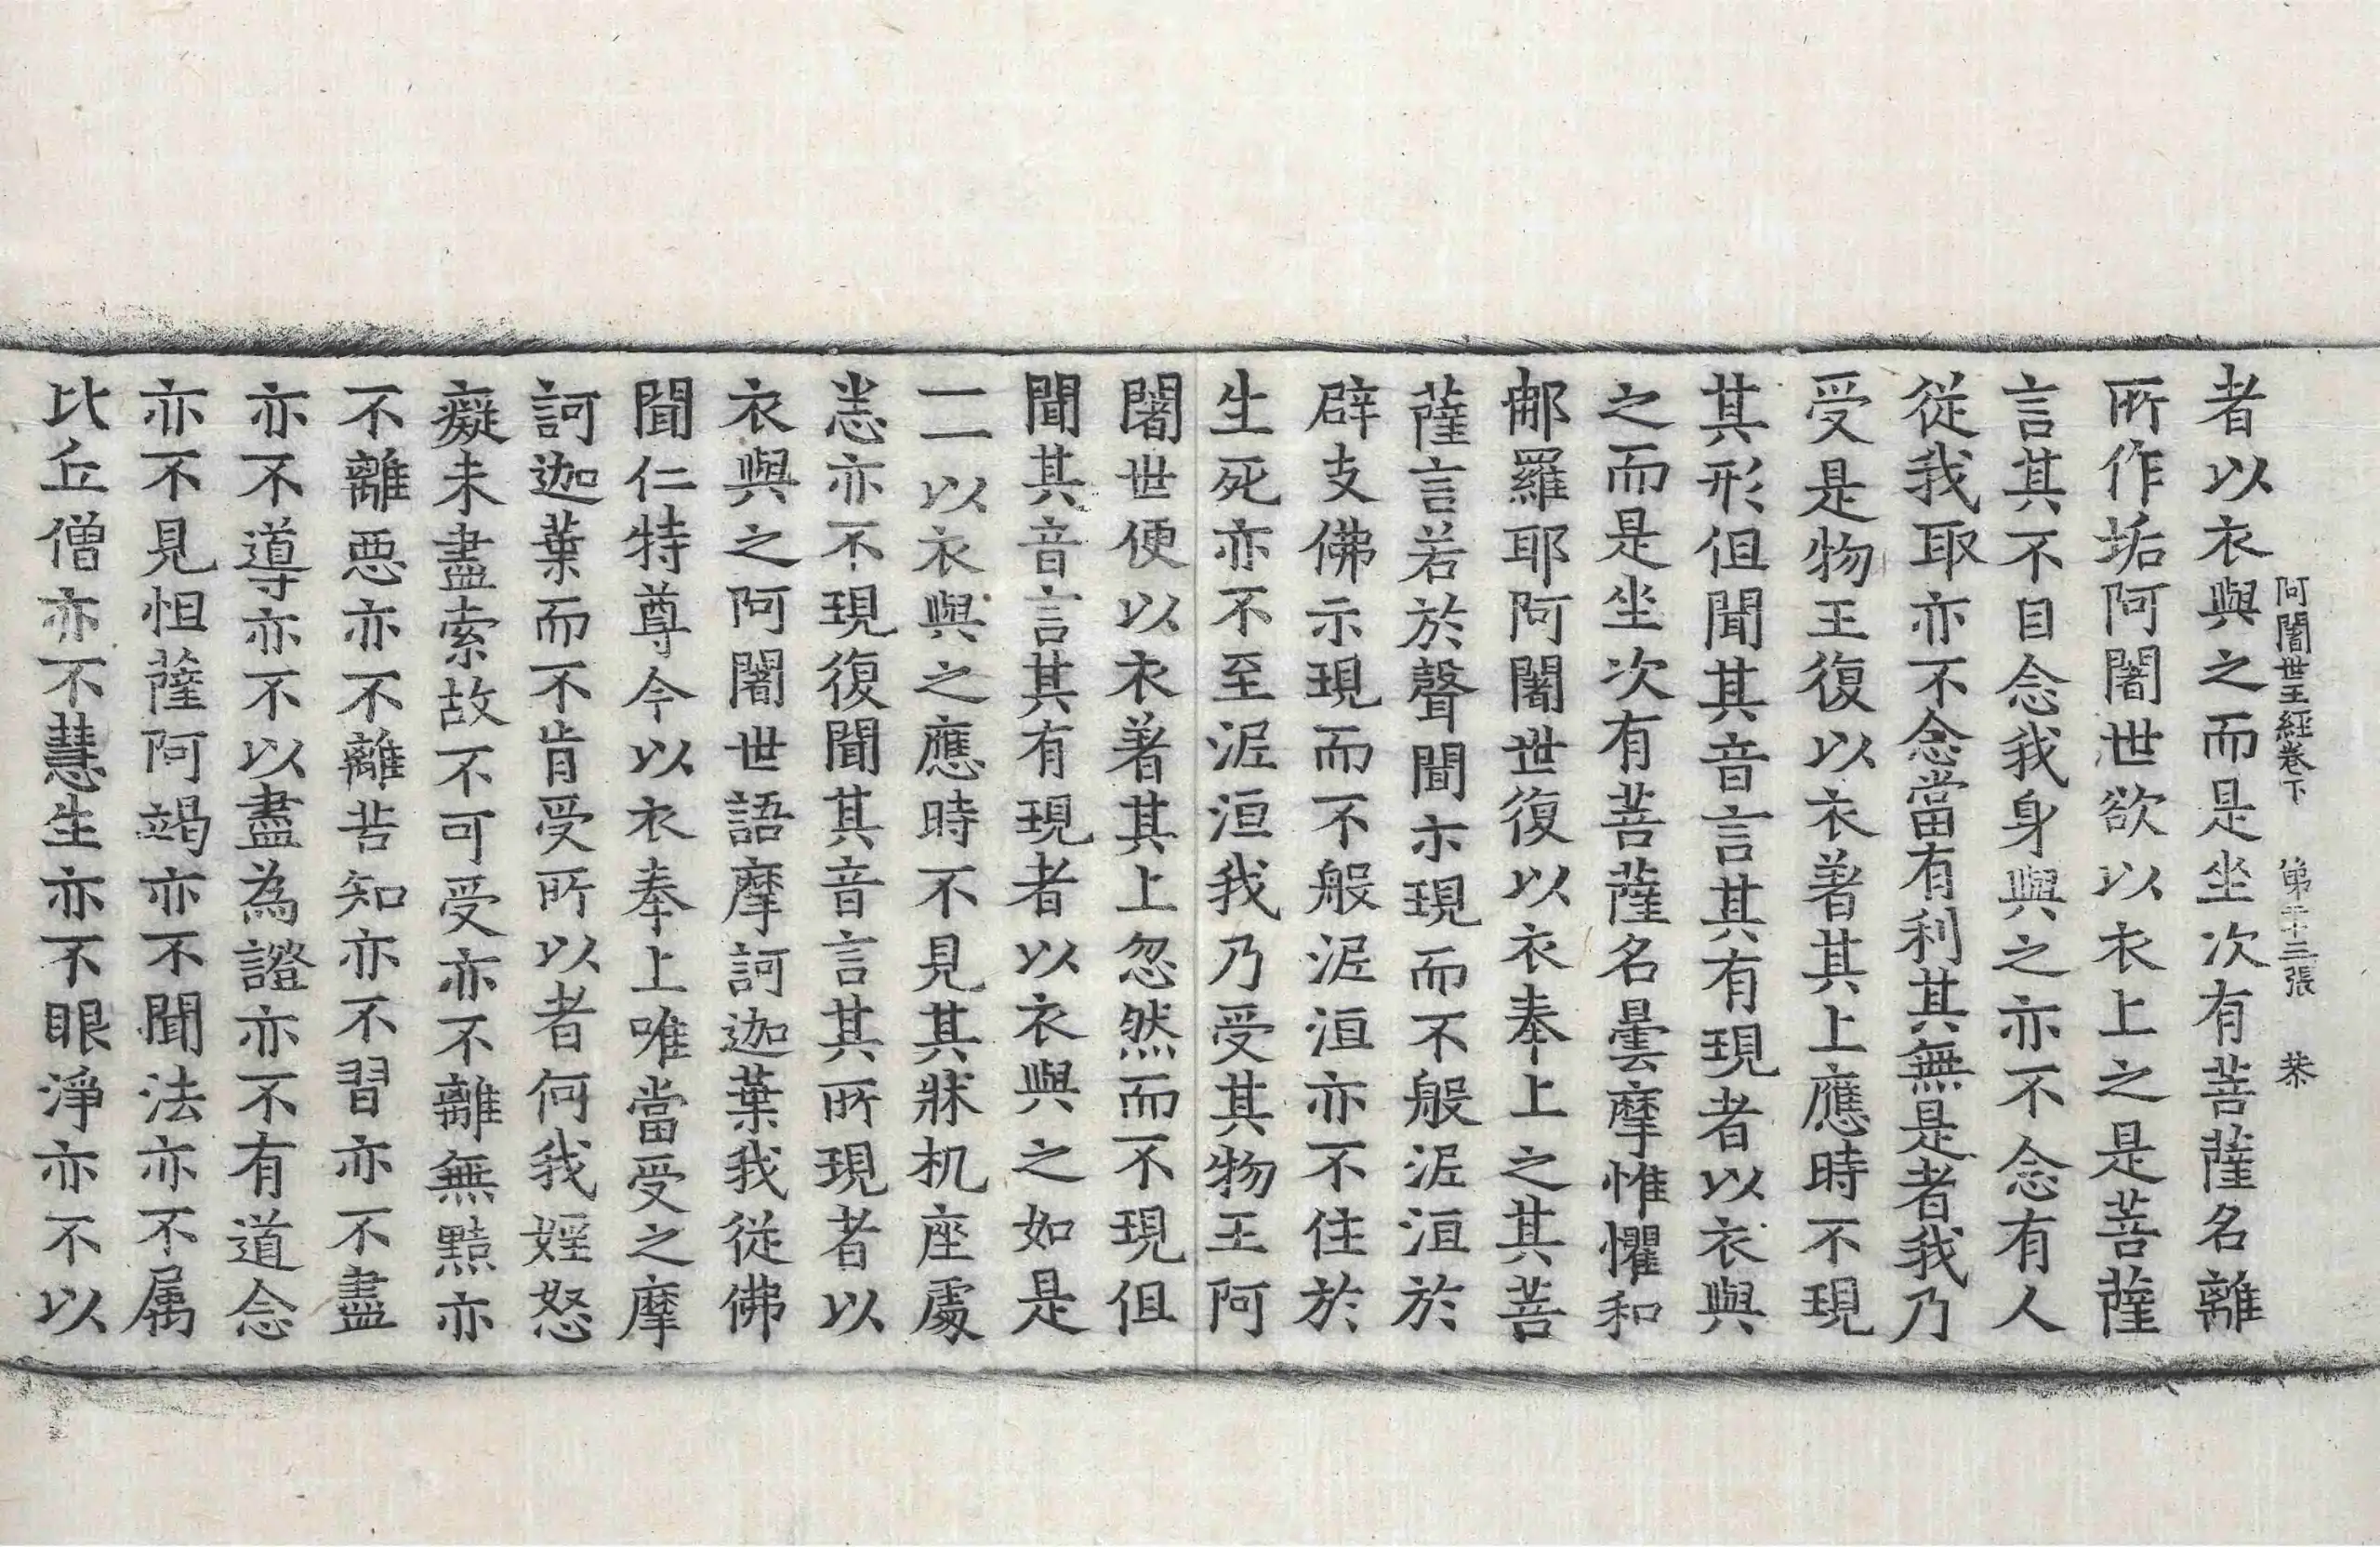 阿闍世王經卷下 第二十三張 恭
者以衣與之而是坐次有菩薩名離
所作垢阿闍世欲以衣上之是菩薩
言其不自念我身與之亦不念有人
從我取亦不念當有利其無是者我乃
受是物王復以衣著其上應時不現
其形但聞其音言其有現者以衣與
之而是坐次有菩薩名曇摩惟懼和
那羅耶阿闍世復以衣奉上之其菩
薩言若於聲聞示現而不般泥洹於
辟支佛示現而不般泥洹亦不住於
生死亦不至泥洹我乃受其物王阿
闍世便以衣著其上忽然而不現但
聞其音言其有現者以衣與之如是
一一以衣與之應時不見其牀机座處
悉亦不現復聞其音言其所現者以
衣與之阿闍世語摩訶迦葉我從佛
聞仁特尊今以衣奉上唯當受之摩
訶迦葉而不肯受所以者何我婬怒
癡未盡索故不可受亦不離無黠亦
不離悪亦不離苦知亦不習亦不盡
亦不導亦不以盡為證亦不有道念
亦不見怛薩阿竭亦不聞法亦不属
比丘僧亦不慧生亦不眼淨亦不以